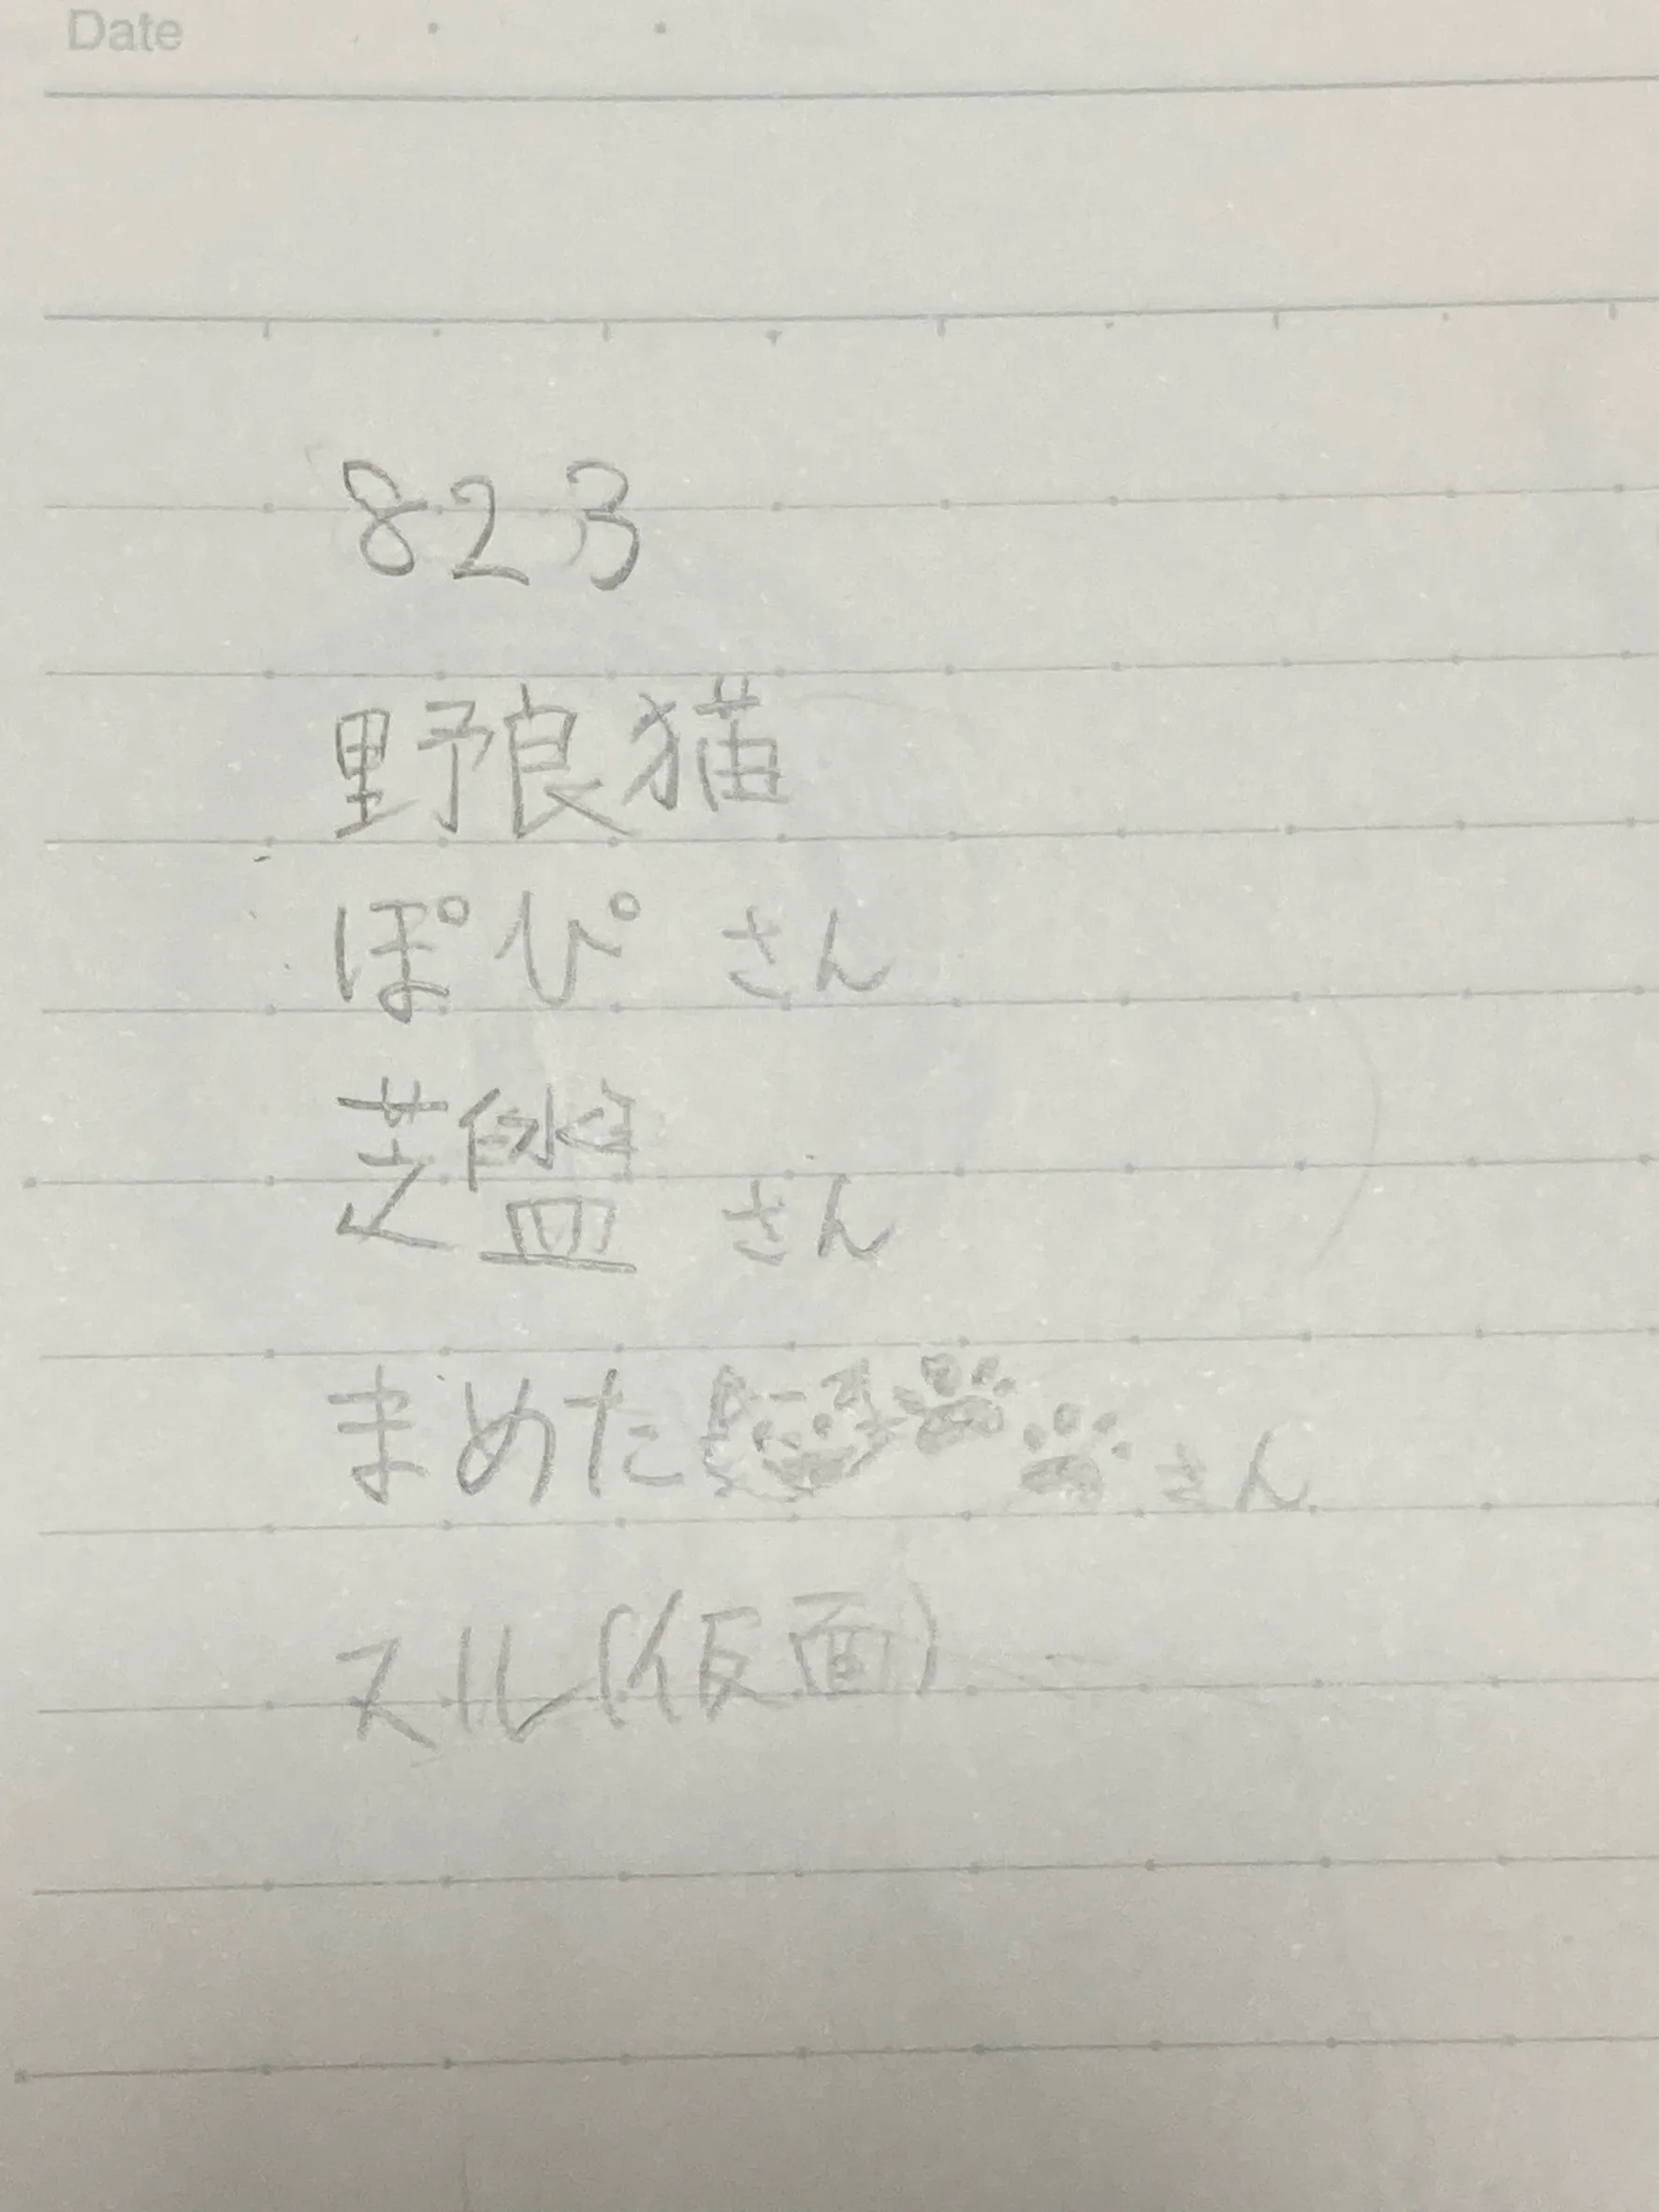 Date
823
野良猫
ぽぴ さん
芝盥 さん
まめた さん
ヌル(仮面)